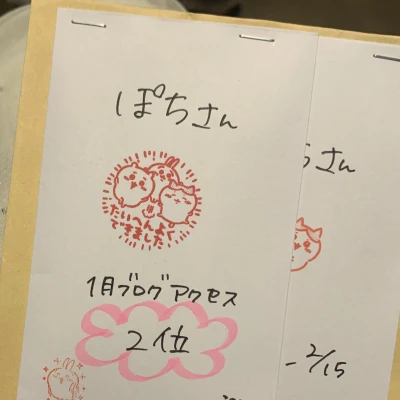 ぽちさん
たいへんよく
できました
1月ブログアクセス
2位
さん
- 2/15